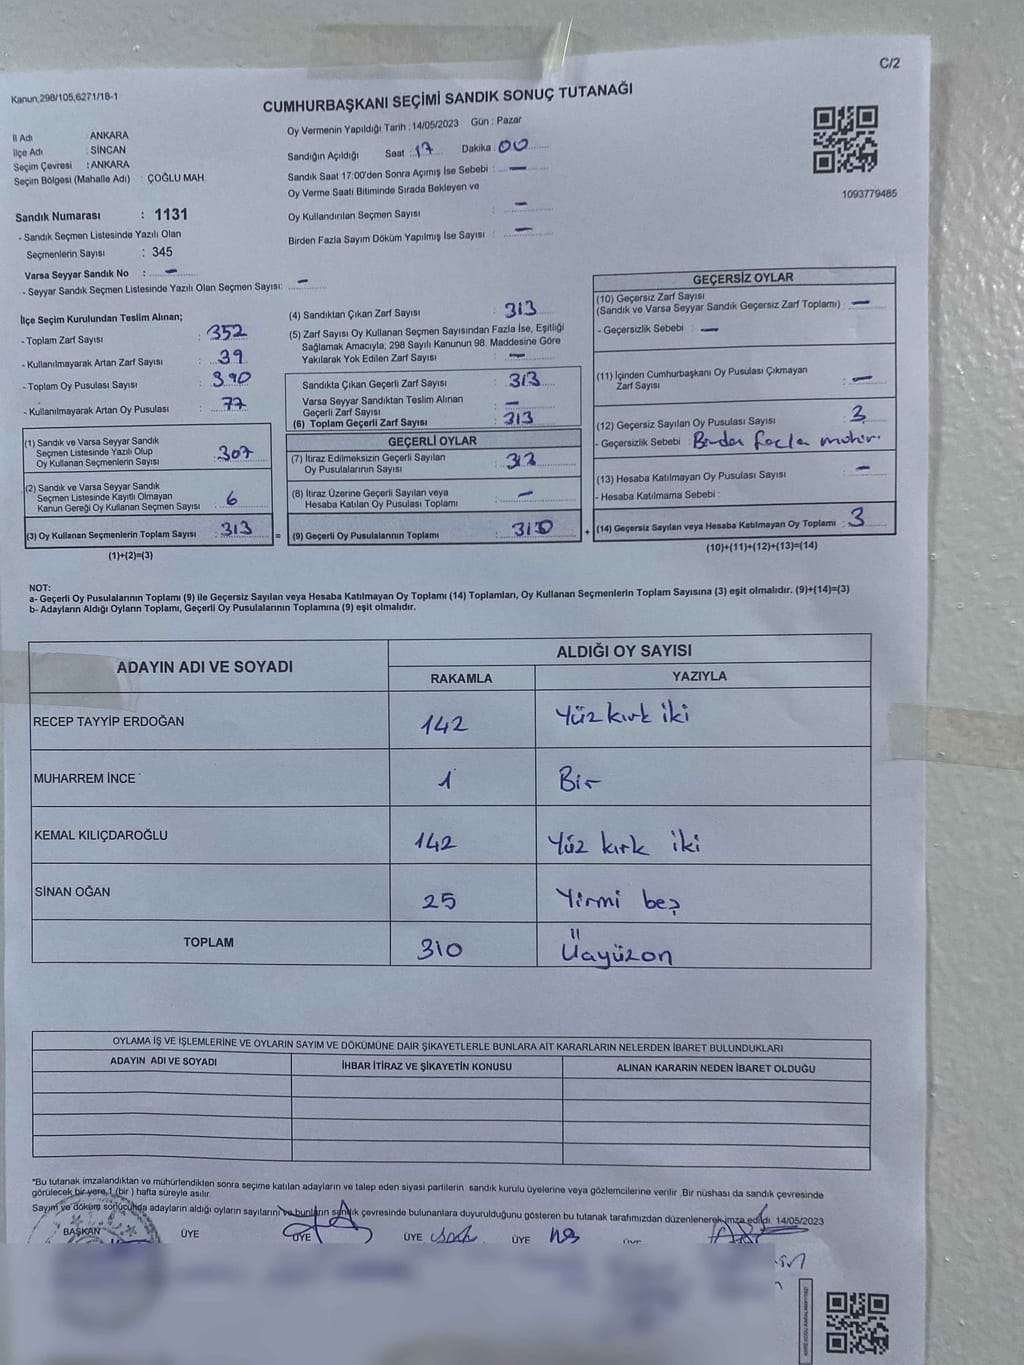 C/2
Kanun;298/105,6271/18-1
CUMHURBAŞKANI SEÇİMİ SANDIK SONUÇ TUTANAĞI
İl Adı ANKARA
İlçe Adı : SİNCAN
Seçim Çevresi : ANKARA
Seçim Bölgesi (Mahalle Adı) : ÇOĞLU MAH
Oy Vermenin Yapıldığı Tarih : 14/05/2023 Gün : Pazar
Sandığın Açıldığı Saat : 17 Dakika : 00
Sandık Saat 17:00'den Sonra Açımış İse Sebebi : —
Oy Verme Saati Bitiminde Sırada Bekleyen ve
Oy Kullandırılan Seçmen Sayısı : —
Birden Fazla Sayım Döküm Yapılmış İse Sayısı : —
1093779485
Sandık Numarası : 1131
- Sandık Seçmen Listesinde Yazılı Olan
Seçmenlerin Sayısı : 345
Varsa Seyyar Sandık No : —
- Seyyar Sandık Seçmen Listesinde Yazılı Olan Seçmen Sayısı: —
İlçe Seçim Kurulundan Teslim Alınan;
- Toplam Zarf Sayısı : 352
- Kullanılmayarak Artan Zarf Sayısı : 39
- Toplam Oy Pusulası Sayısı : 390
- Kullanılmayarak Artan Oy Pusulası : 77
(1) Sandık ve Varsa Seyyar Sandık
Seçmen Listesinde Yazılı Olup
Oy Kullanan Seçmenlerin Sayısı : 307
(2) Sandık ve Varsa Seyyar Sandık
Seçmen Listesinde Kayıtlı Olmayan
Kanun Gereği Oy Kullanan Seçmen Sayısı : 6
(3) Oy Kullanan Seçmenlerin Toplam Sayısı : 313
(1)+(2)=(3)
(4) Sandıktan Çıkan Zarf Sayısı : 313
(5) Zarf Sayısı Oy Kullanan Seçmen Sayısından Fazla İse, Eşitliği
Sağlamak Amacıyla; 298 Sayılı Kanunun 98. Maddesine Göre
Yakılarak Yok Edilen Zarf Sayısı : —
Sandıkta Çıkan Geçerli Zarf Sayısı : 313
Varsa Seyyar Sandıktan Teslim Alınan
Geçerli Zarf Sayısı : —
(6) Toplam Geçerli Zarf Sayısı : 313
GEÇERLİ OYLAR
(7) İtiraz Edilmeksizin Geçerli Sayılan
Oy Pusulalarının Sayısı :
(8) İtiraz Üzerine Geçerli Sayılan veya
Hesaba Katılan Oy Pusulası Toplamı : —
= (9) Geçerli Oy Pusulalarının Toplamı : 310 +
GEÇERSİZ OYLAR
(10) Geçersiz Zarf Sayısı
(Sandık ve Varsa Seyyar Sandık Geçersiz Zarf Toplamı) : —
- Geçersizlik Sebebi : —
(11) İçinden Cumhurbaşkanı Oy Pusulası Çıkmayan
Zarf Sayısı : —
(12) Geçersiz Sayılan Oy Pusulası Sayısı : 3
- Geçersizlik Sebebi : Birden fazla mühür.
(13) Hesaba Katılmayan Oy Pusulası Sayısı : —
- Hesaba Katılmama Sebebi :
(14) Geçersiz Sayılan veya Hesaba Katılmayan Oy Toplamı : 3
(10)+(11)+(12)+(13)=(14)
NOT:
a- Geçerli Oy Pusulalarının Toplamı (9) ile Geçersiz Sayılan veya Hesaba Katılmayan Oy Toplamı (14) Toplamları, Oy Kullanan Seçmenlerin Toplam Sayısına (3) eşit olmalıdır. (9)+(14)=(3)
b- Adayların Aldığı Oyların Toplamı, Geçerli Oy Pusulalarının Toplamına (9) eşit olmalıdır.
ADAYIN ADI VE SOYADI
ALDIĞI OY SAYISI
RAKAMLA YAZIYLA
RECEP TAYYİP ERDOĞAN 142 Yüz kırk iki
MUHARREM İNCE 1 Bir
KEMAL KILIÇDAROĞLU 142 Yüz kırk iki
SİNAN OĞAN 25 Yirmi beş
TOPLAM 310 Üçyüzon
OYLAMA İŞ VE İŞLEMLERİNE VE OYLARIN SAYIM VE DÖKÜMÜNE DAİR ŞİKAYETLERLE BUNLARA AİT KARARLARIN NELERDEN İBARET BULUNDUKLARI
ADAYIN ADI VE SOYADI İHBAR İTİRAZ VE ŞİKAYETİN KONUSU ALINAN KARARIN NEDEN İBARET OLDUĞU
*Bu tutanak imzalandıktan ve mühürlendikten sonra seçime katılan adayların ve talep eden siyasi partilerin sandık kurulu üyelerine veya gözlemcilerine verilir .Bir nüshası da sandık çevresinde
görülecek bir yere 1 (bir ) hafta süreyle asılır.
Sayım ve döküm sonucunda adayların aldığı oyların sayılarını ve bunların sandık çevresinde bulunanlara duyurulduğunu gösteren bu tutanak tarafımızdan düzenlenerek imza edildi. 14/05/2023
BAŞKAN ÜYE ÜYE ÜYE ÜYE